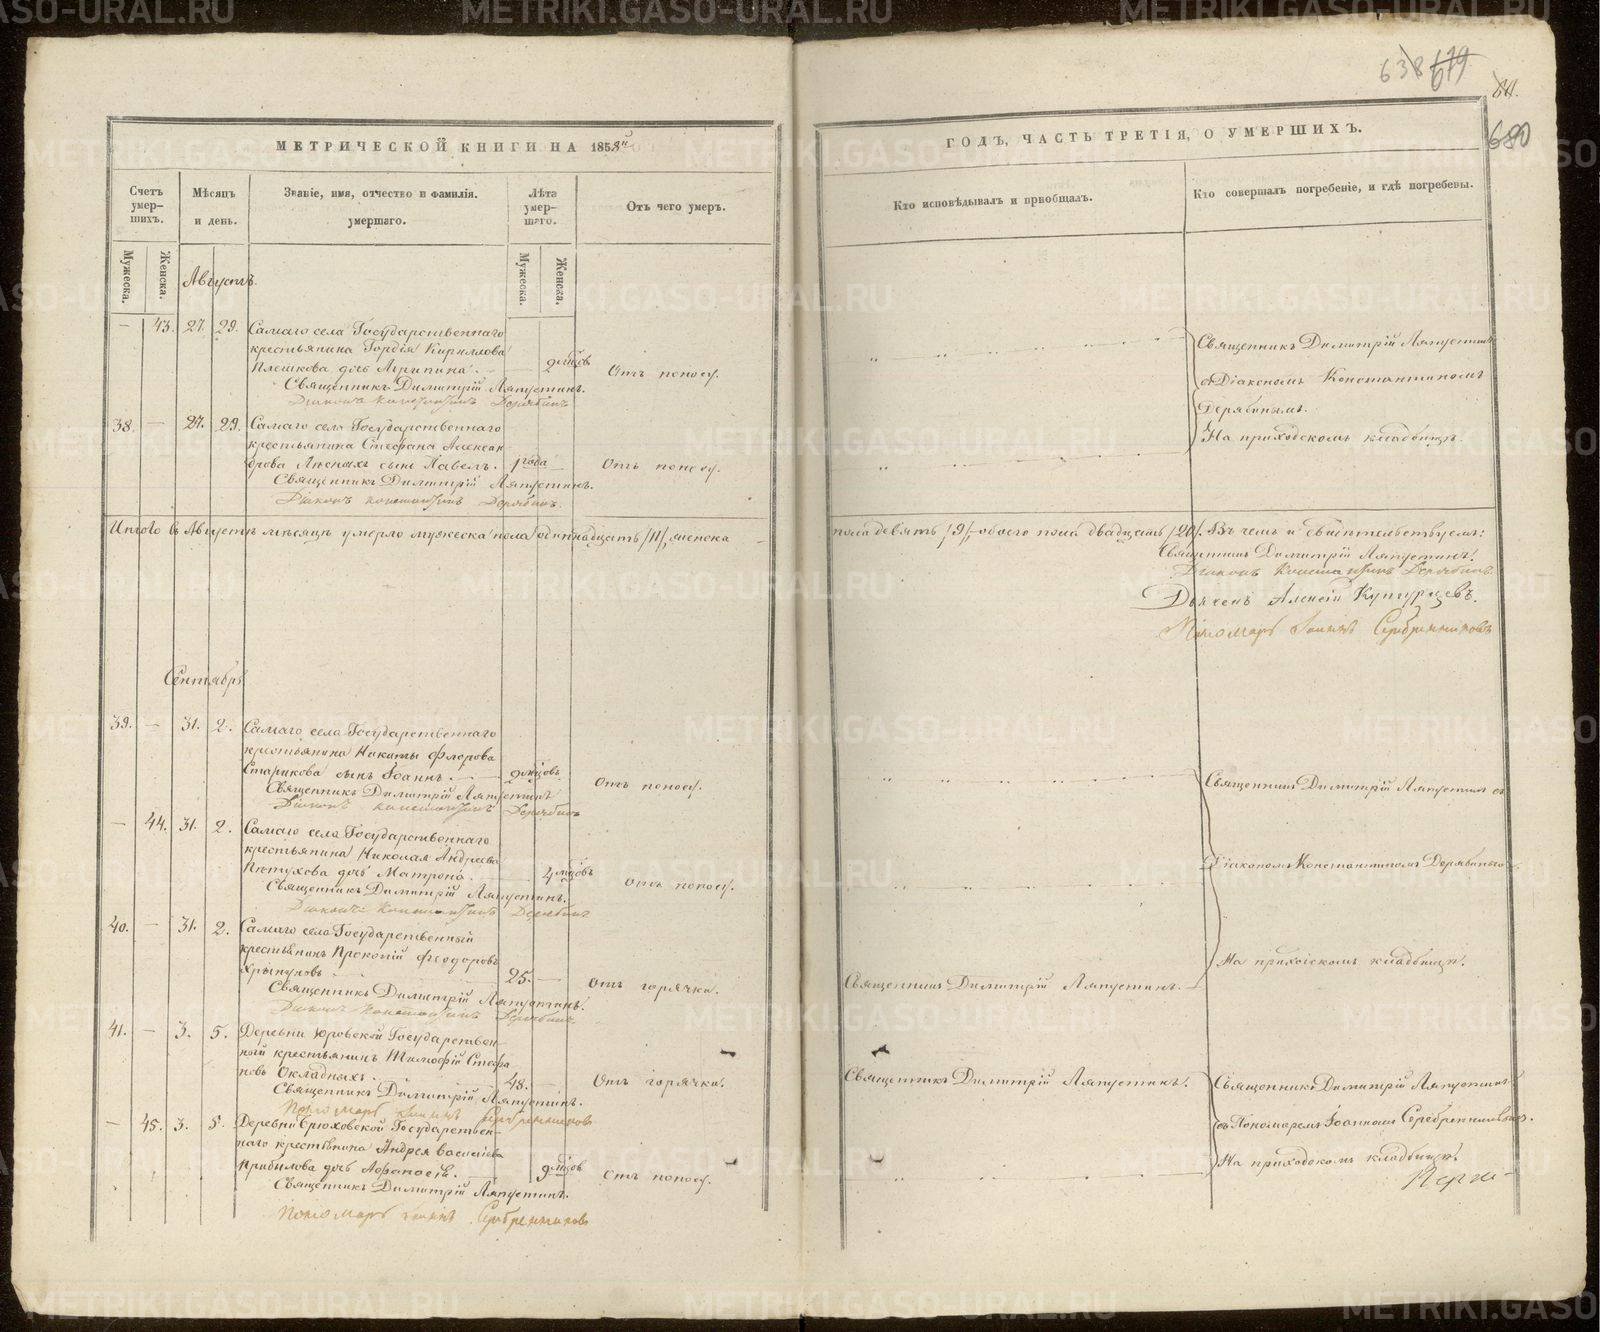 638 679
МЕТРИЧЕСКОЙ КНИГИ НА 1858й
Счетъ умер-шихъ.
Мѣсяцъ и день.
Званіе, имя, отчество и фамилія. умершаго.
Лѣта умер-шаго.
Отъ чего умеръ.
Мужеска.
Женска.
Мужеска.
Женска.
Августъ.
— 43. 27. 29. Самаго села Государственнаго
крестьянина Гордія Кириллова
Плешкова дочь Агрипина. 9 мѣсцовъ Отъ поносу.
Священникъ Димитрій Ляпустинъ.
Діаконъ Константинъ Дерябинъ
38. — 27. 29. Самаго села Государственнаго
крестьянина Стефана Алексан
дрова Лисныхъ сынъ Павелъ. 1 года Отъ поносу.
Священникъ Димитрій Ляпустинъ.
Діаконъ Константинъ Дерябинъ.
Итого въ Августѣ мѣсяцѣ умерло мужеска пола одиннадцать /11/, женска
Сентябрь
39. — 31. 2. Самаго села Государственнаго
крестьянина Никиты Флорова
Старикова сынъ Іоаннъ. 9 мѣсцовъ Отъ поносу.
Священникъ Димитрій Ляпустинъ
Діаконъ Константинъ Дерябинъ
— 44. 31. 2. Самаго села Государственнаго
крестьянина Николая Андреева
Пѣтухова дочь Матрона. 4 мѣсцовъ Отъ поносу.
Священникъ Димитрій Ляпустинъ.
Діаконъ Константинъ Дерябинъ
40. — 31. 2. Самаго села Государственный
крестьянинъ Прокопій Феодоровъ
Хрыпуновъ 25. — Отъ горячки.
Священникъ Димитрій Ляпустинъ.
Діаконъ Константинъ Дерябинъ
41. — 3. 5. Деревни Юровской Государствен-
ный крестьянинъ Тимофій Стефа
новъ Окладныхъ. 48. — Отъ горячки.
Священникъ Димитрій Ляпустинъ.
Пономарь Іоаннъ Серебренниковъ
— 45. 3. 5. Деревни Брюховской Государствен-
наго крестьянина Андрея Василіева
Прибылова дочь 9 мѣсцовъ Отъ поносу.
Священникъ Димитрій Ляпустинъ.
Пономарь Іоаннъ Серебренниковъ
680
ГОДЪ, ЧАСТЬ ТРЕТІЯ, О УМЕРШИХЪ.
Кто исповѣдывалъ и пріобщалъ.
Кто совершалъ погребеніе, и гдѣ погребены.
Священникъ Димитрій Ляпустинъ
съ Діакономъ Константиномъ
Дерябинымъ.
На приходскомъ кладбищѣ.
пола девять /9/, обоего пола двадцать /20/. Въ чемъ и свидѣтельствуемъ:
Священникъ Димитрій Ляпустинъ.
Діаконъ Константинъ Дерябинъ.
Дьячекъ Алексій Кунгурцевъ.
Пономарь Іоаннъ Серебренниковъ
Священникъ Димитрій Ляпустинъ съ
Діакономъ Константиномъ Дерябинымъ
На приходскомъ кладбищѣ.
Священникъ Димитрій Ляпустинъ.
Священникъ Димитрій Ляпустинъ.
Священникъ Димитрій Ляпустинъ
съ Пономаремъ Іоанномъ Серебренниковымъ.
На приходскомъ кладбищѣ
METRIKI.GASO-URAL.RU